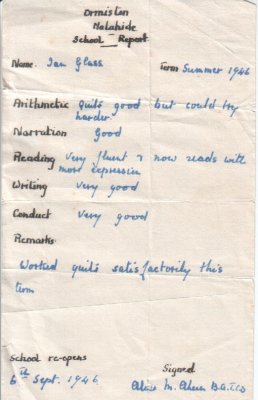 Ormiston
Malahide
School Report.
Name. Ian Glass Term Summer 1946
Arithmetic quite good but could try
harder.
Narration Good
Reading Very fluent & now reads with
more expression
Writing Very good
Conduct Very good
Remarks.
Worked quite satisfactorily this
term
School re-opens Signed.
6th Sept. 1946. M.